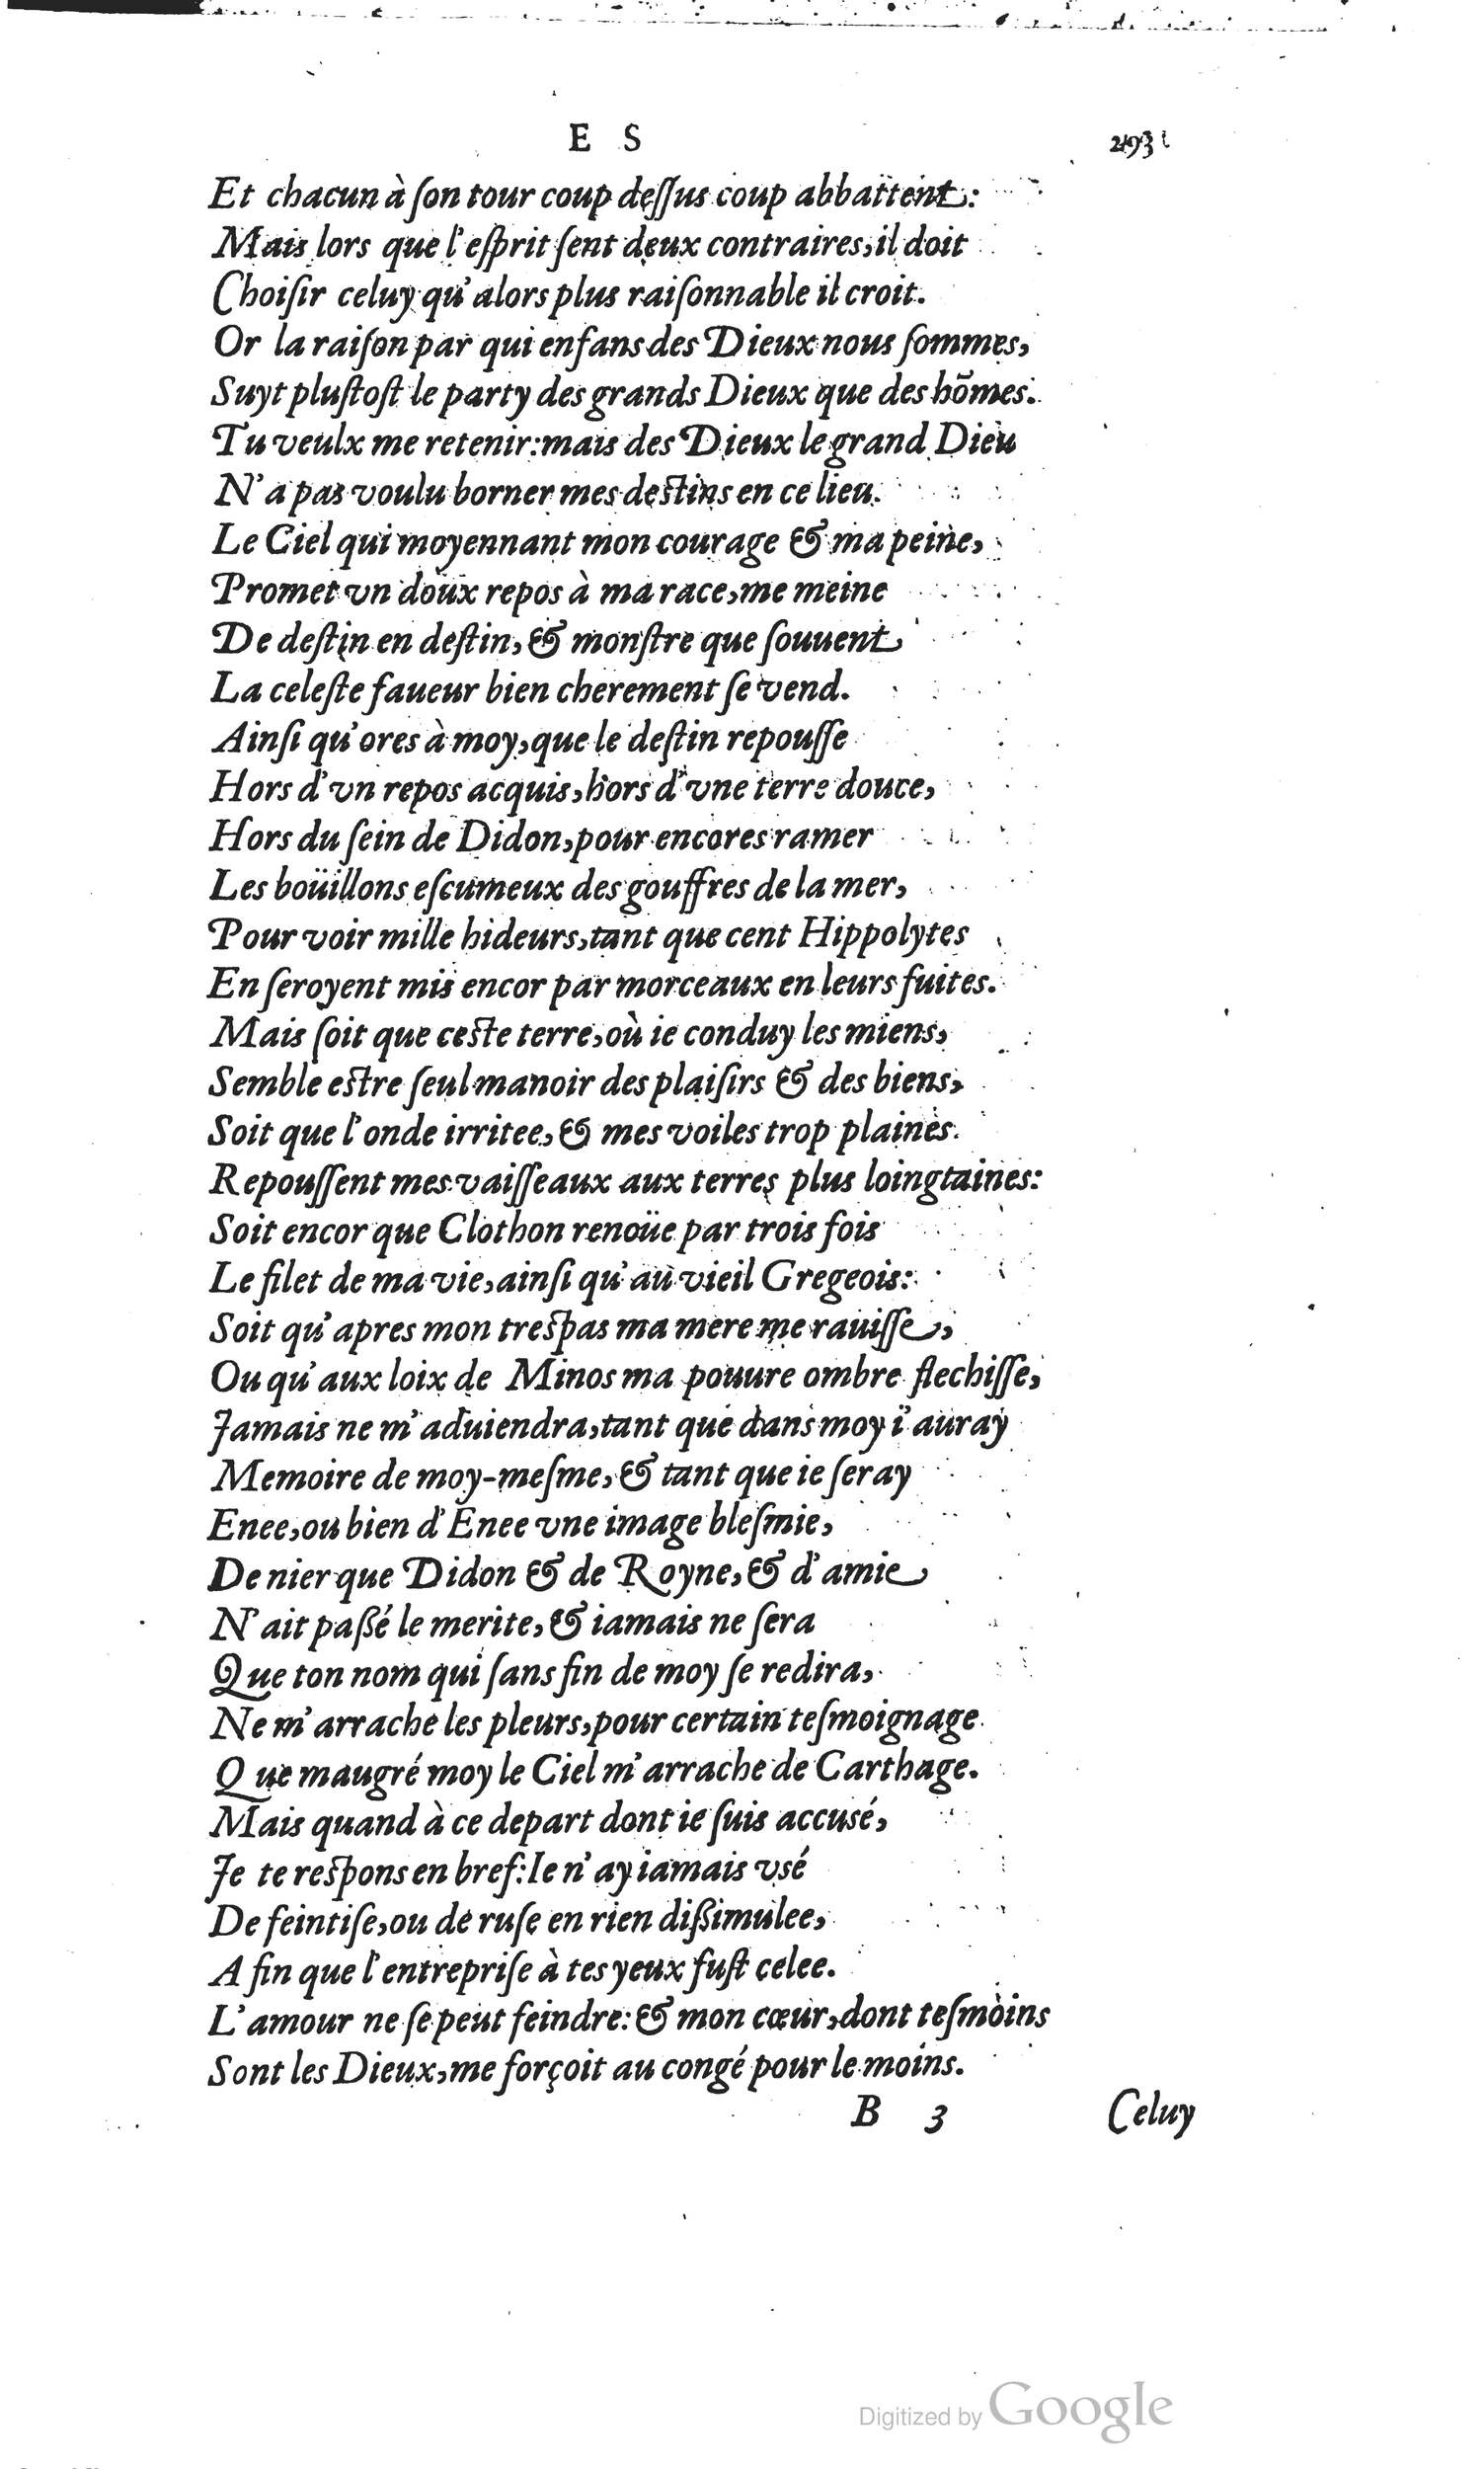 E S 293
Et chacun à ſon tour coup deſſus coup abbattent:
Mais lors que l'eſprit ſent deux contraires, il doit
Choiſir celuy qu'alors plus raiſonnable il croit.
Or la raiſon par qui enfans des Dieux nous ſommes,
Suyt pluſtoſt le party des grands Dieux que des hõmes.
Tu veulx me retenir: mais des Dieux le grand Dieu
N'a pas voulu borner mes deſtins en ce lieu.
Le Ciel qui moyennant mon courage & ma peine,
Promet vn doux repos à ma race, me meine
De deſtin en deſtin, & monſtre que ſouuent
La celeſte faueur bien cherement ſe vend.
Ainſi qu'ores à moy, que le deſtin repouſſe
Hors d'vn repos acquis, hors d'vne terre douce,
Hors du ſein de Didon, pour encores ramer
Les boüillons eſcumeux des gouffres de la mer,
Pour voir mille hideurs, tant que cent Hippolytes
En ſeroyent mis encor par morceaux en leurs fuites.
Mais ſoit que ceſte terre, où ie conduy les miens,
Semble eſtre ſeul manoir des plaiſirs & des biens,
Soit que l'onde irritee, & mes voiles trop plaines
Repouſſent mes vaiſſeaux aux terres plus loingtaines:
Soit encor que Clothon renoüe par trois fois
Le filet de ma vie, ainſi qu'au vieil Gregeois:
Soit qu'apres mon treſpas ma mere me rauiſſe,
Ou qu'aux loix de Minos ma pouure ombre flechiſſe,
Jamais ne m'aduiendra, tant que dans moy i'auray
Memoire de moy-meſme, & tant que ie ſeray
Enee, ou bien d'Enee vne image bleſmie,
De nier que Didon & de Royne, & d'amie
N'ait paßé le merite, & iamais ne ſera
Que ton nom qui ſans fin de moy ſe redira,
Ne m'arrache les pleurs, pour certain teſmoignage
Que maugré moy le Ciel m'arrache de Carthage.
Mais quand à ce depart dont ie ſuis accusé,
Je te reſpons en bref: Ie n'ay iamais vsé
De feintiſe, ou de ruſe en rien dißimulee,
A fin que l'entrepriſe à tes yeux fuſt celee.
L'amour ne ſe peut feindre: & mon cœur, dont teſmoins
Sont les Dieux, me forçoit au congé pour le moins.
B 3 Celuy
Digitized by Google